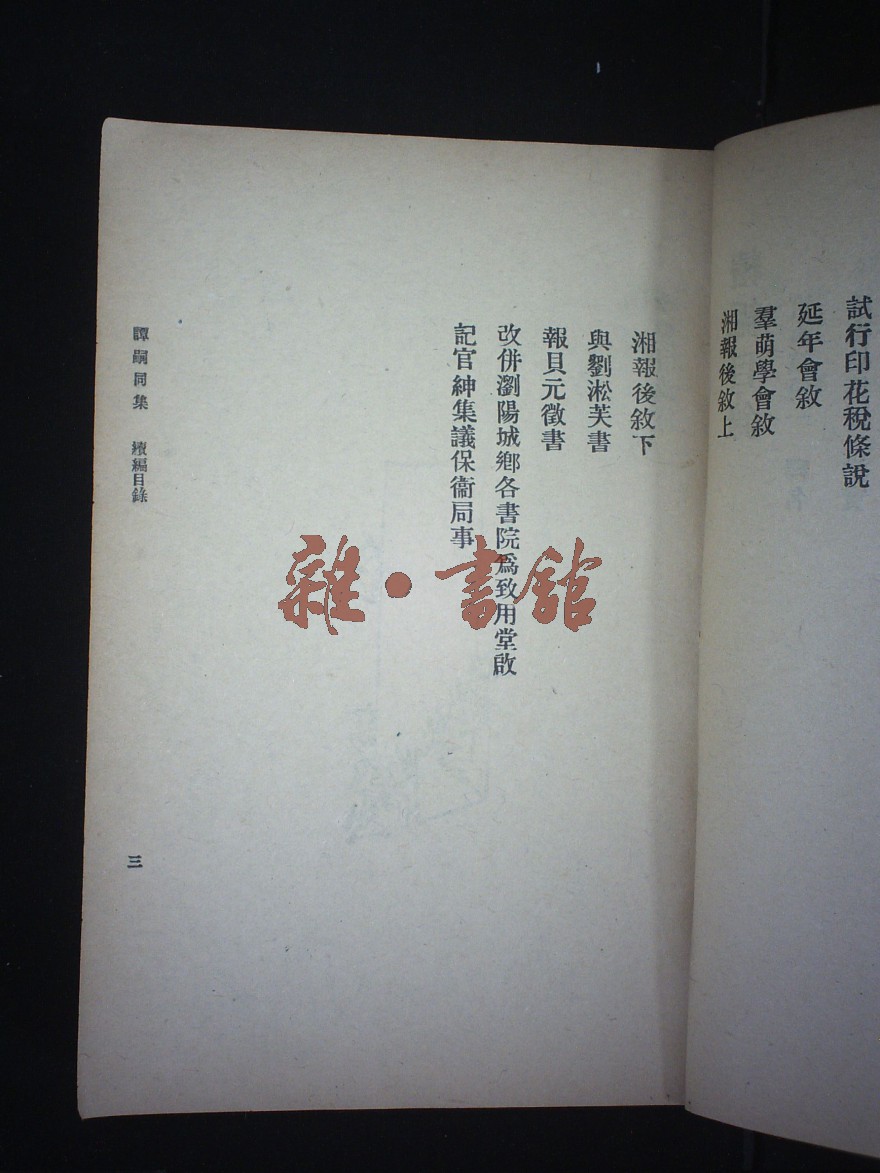 試行印花稅條說
延年會敘
羣萌學會敘
湘報後敘上
湘報後敘下
與劉淞芙書
報貝元徵書
改併瀏陽城鄉各書院為致用堂啟
記官紳集議保衞局事
譚嗣同集 續編目錄
三
雜·書館